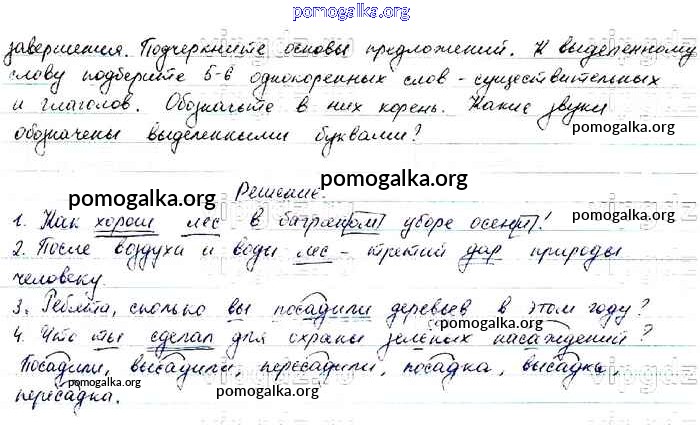 pomogalka.org
завершения. Подчеркните основы предложений. К выделенному
слову подберите 5-6 однокоренных слов - существительных
и глаголов. Обозначьте в них корень. Какие звуки
обозначены выделенными буквами?
pomogalka.org
Решение.
pomogalka.org
pomogalka.org
1. Как хорош лес в багряном уборе осени!
pomogalka.org
2. После воздуха и воды лес - третий дар природы
человеку.
pomogalka.org
3. Ребята, сколько вы посадили деревьев в этом году?
pomogalka.org
4. Что ты сделал для охраны зелёных насаждений?
Посадили, высадили, пересадили, посадка, высадка,
pomogalka.org
пересадка.
pomogalka.org